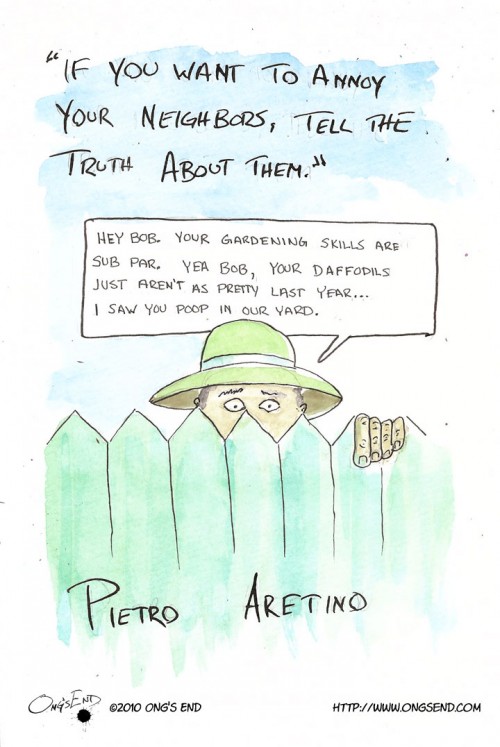 "IF YOU WANT TO ANNOY
YOUR NEIGHBORS, TELL THE
TRUTH ABOUT THEM."
HEY BOB. YOUR GARDENING SKILLS ARE
SUB PAR. YEA BOB, YOUR DAFFODILS
JUST AREN'T AS PRETTY LAST YEAR...
I SAW YOU POOP IN OUR YARD.
PIETRO ARETINO
ONG'S END ©2010 ONG'S END HTTP://WWW.ONGSEND.COM